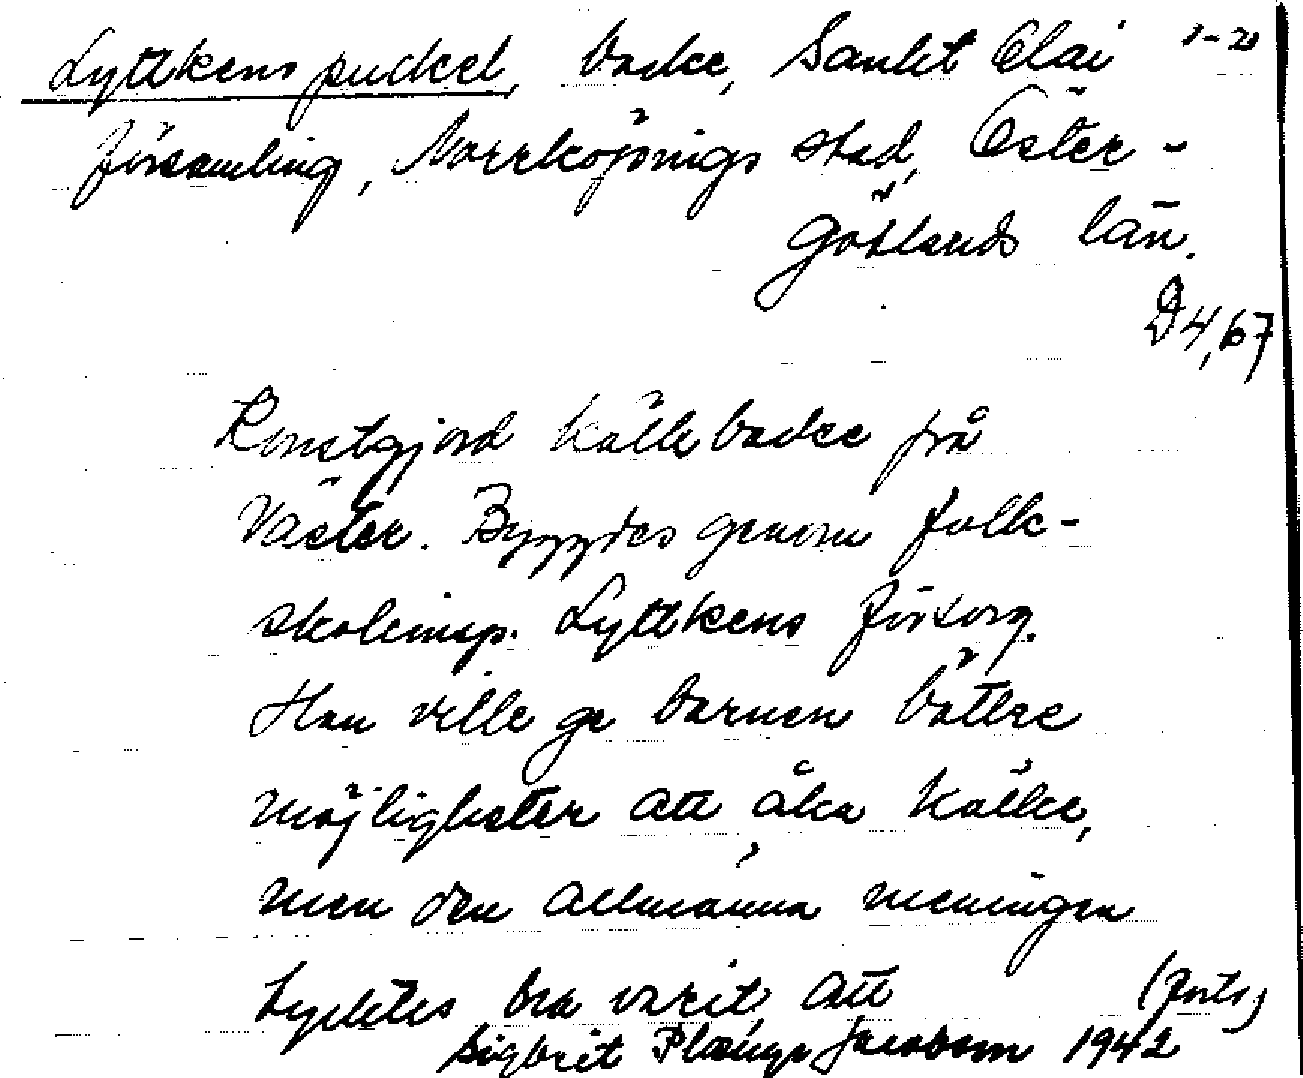 Lyttkens puckel, backe, Sankt Olai 1-21
församling, Norrköpings stad, Öster-
götlands län.
D4,67
Konstgjord kälkbacke på
Väster. Byggdes genom folk-
skoleinsp. Lyttkens försorg.
Han ville ge barnen bättre
möjligheter att åka kälke,
men den allmänna meningen
tycktes ha varit, att (forts)
Sigbrit Plænge Jacobson 1942